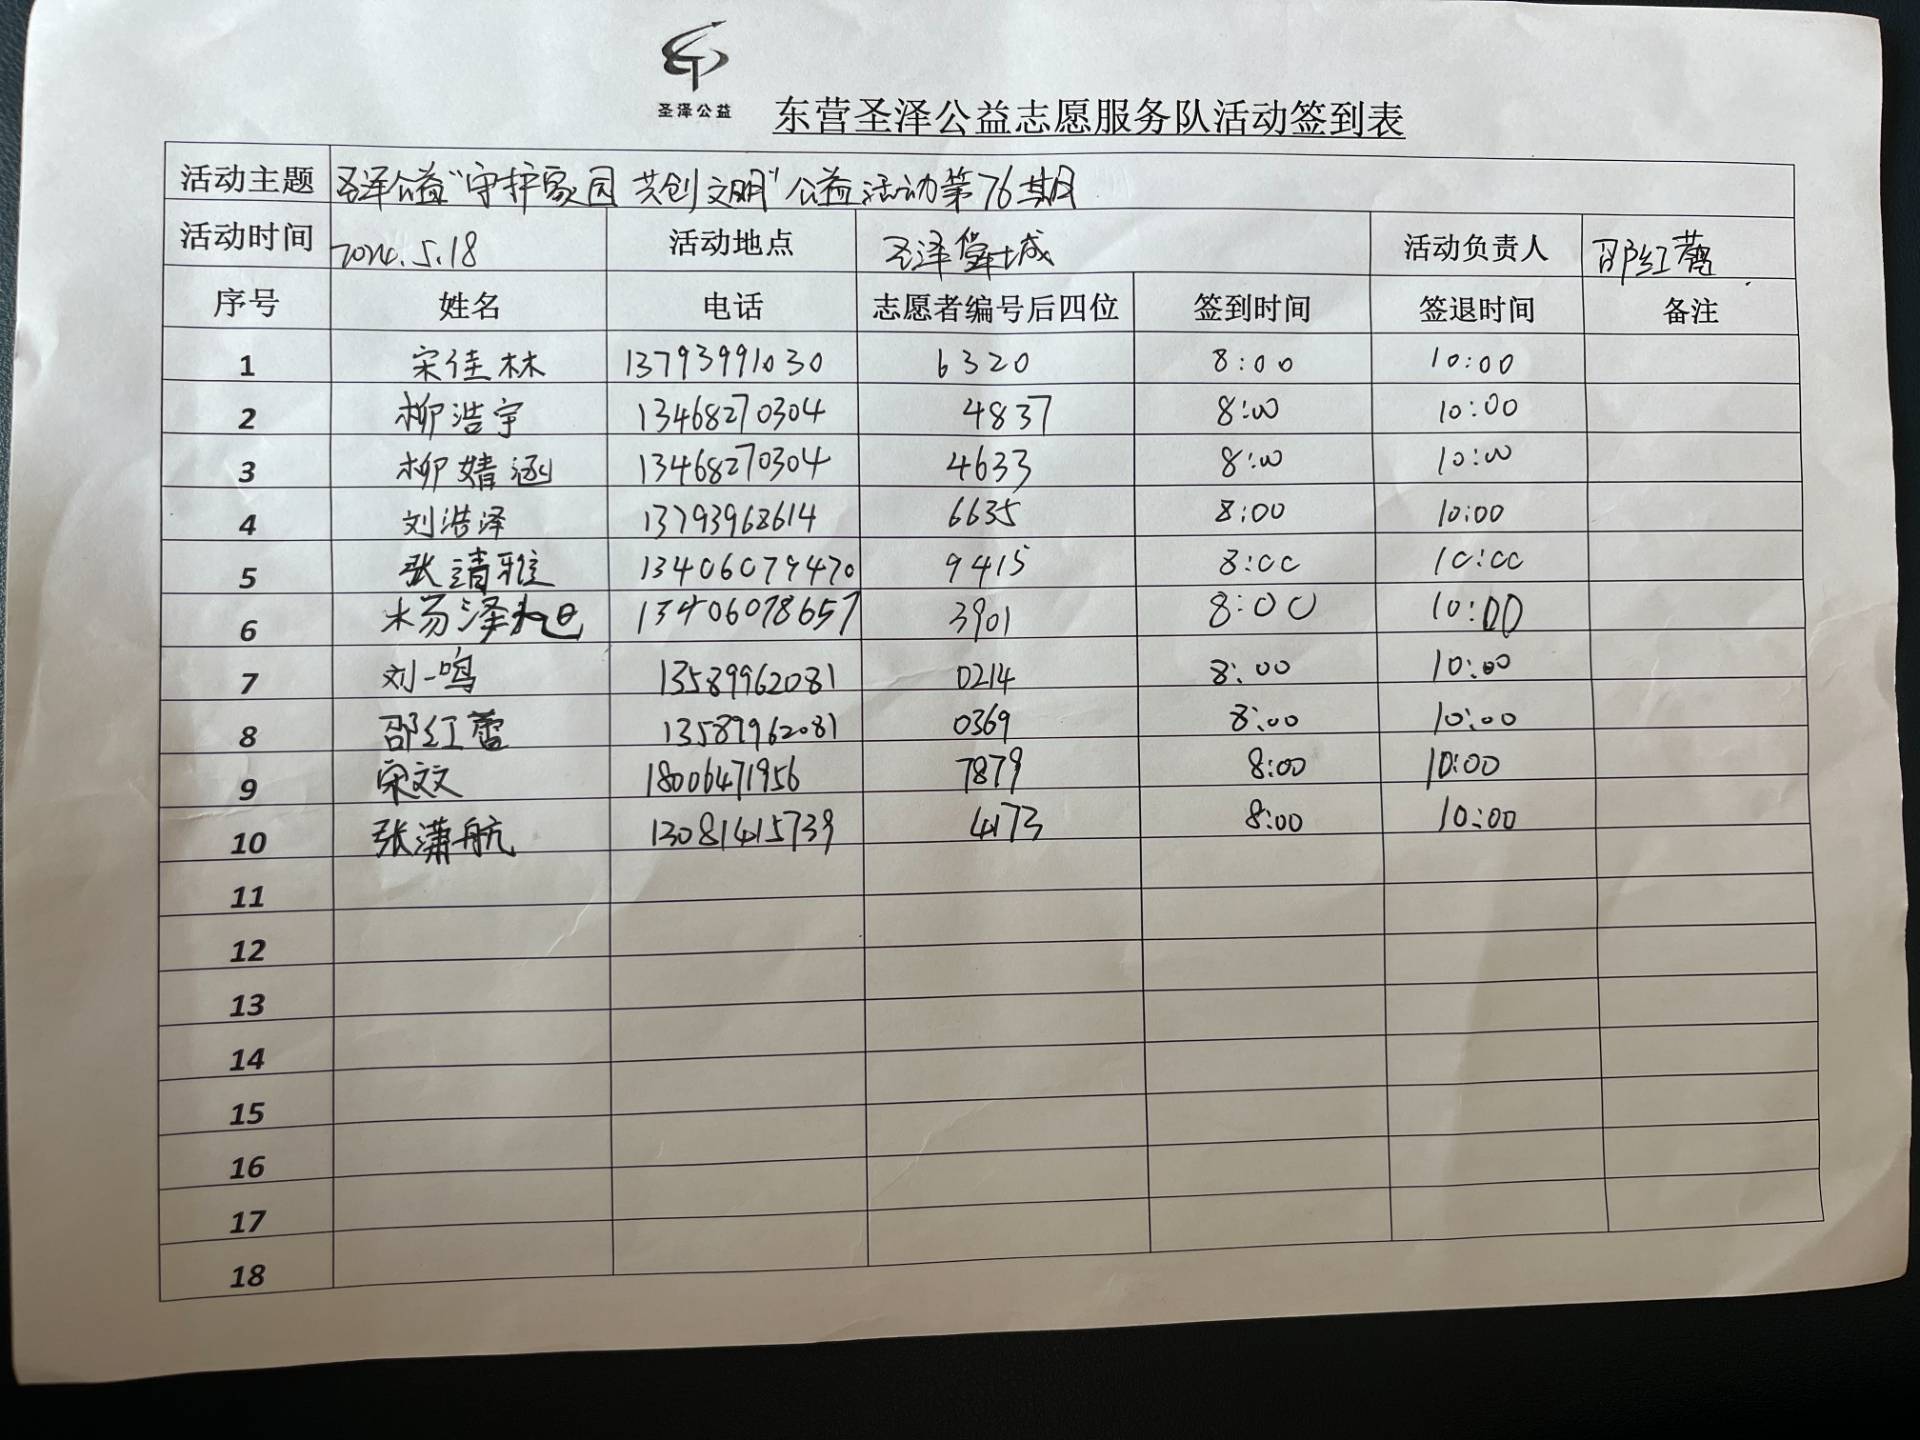 圣泽公益
东营圣泽公益志愿服务队活动签到表
活动主题 圣泽公益“守护家园 共创文明”公益活动第76期
活动时间 2024.5.18 活动地点 圣泽 城 活动负责人 邵红蕾
序号 姓名 电话 志愿者编号后四位 签到时间 签退时间 备注
1 宋佳林 13793991030 6320 8:00 10:00
2 柳浩宇 13468270304 4837 8:00 10:00
3 柳婧涵 13468270304 4633 8:00 10:00
4 刘浩泽 13793968614 6635 8:00 10:00
5 张清雅 13406079470 9415 8:00 10:00
6 杨泽旭 13406078657 3901 8:00 10:00
7 刘一鸣 13589962081 0214 8:00 10:00
8 邵红蕾 13589962081 0369 8:00 10:00
9 宋文文 18006471956 7879 8:00 10:00
10 张潇航 13081415739 4173 8:00 10:00
11
12
13
14
15
16
17
18